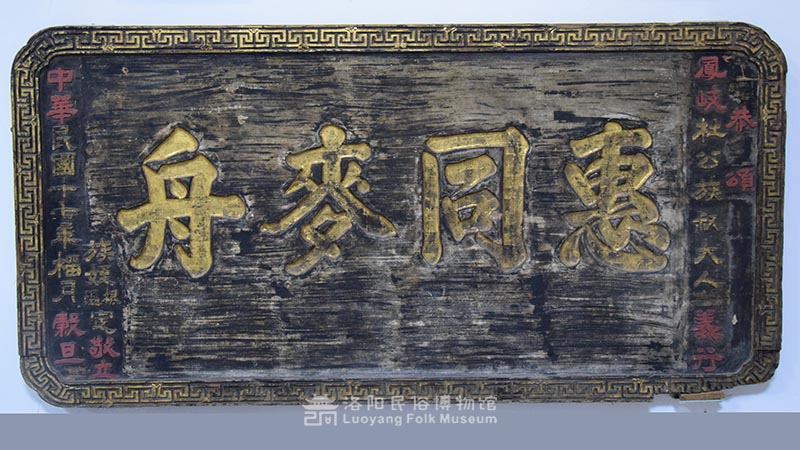 恭頌
鳳岐杜公族叔大人義行
惠同麥舟
族姪 根 定敬立
中華民國十七年榴月穀旦
洛阳民俗博物馆
Luoyang Folk Museum